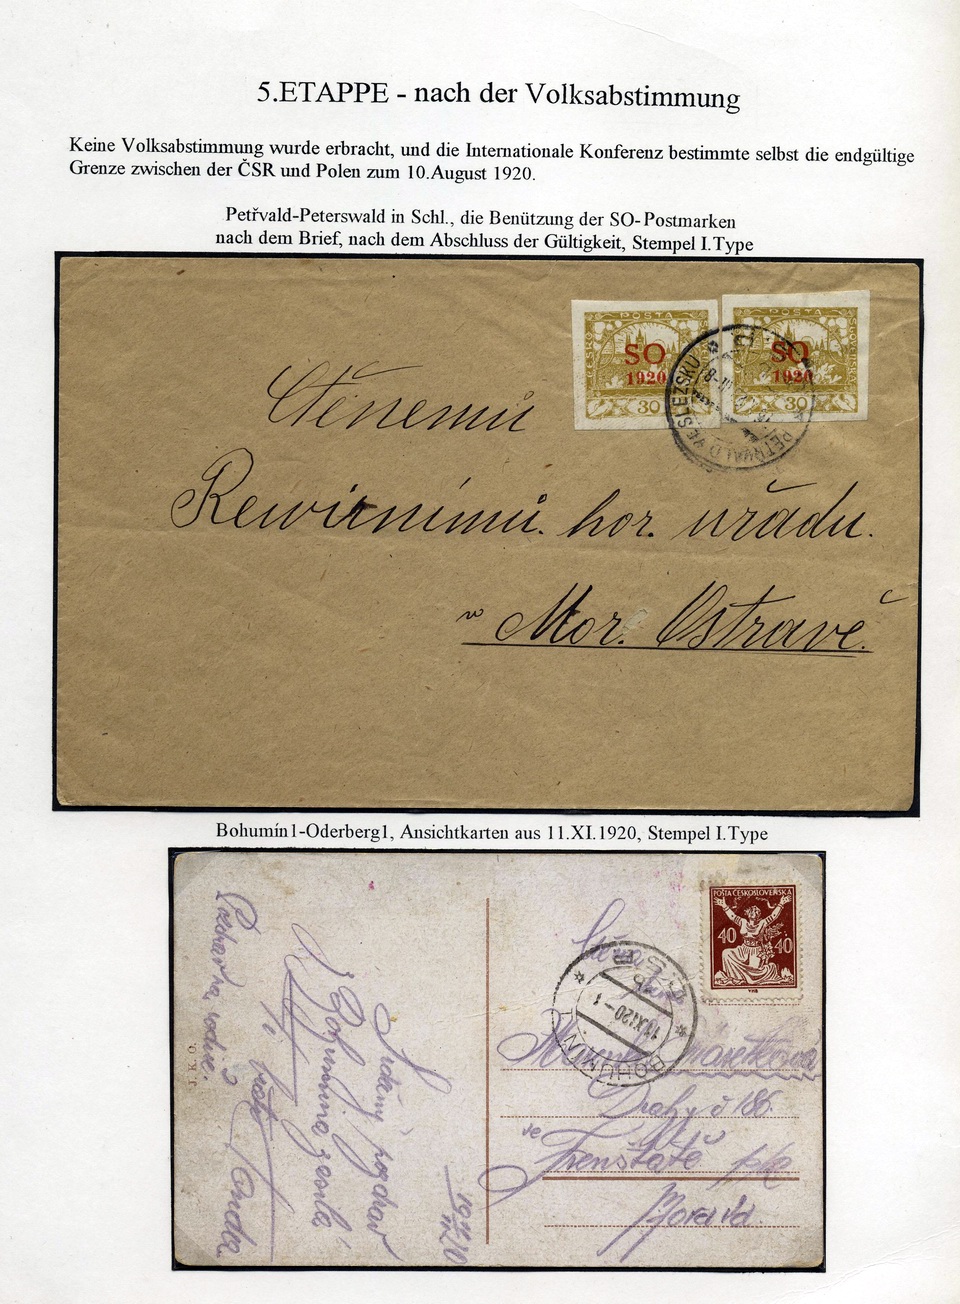 5.ETAPPE - nach der Volksabstimmung
Keine Volksabstimmung wurde erbracht, und die Internationale Konferenz bestimmte selbst die endgültige
Grenze zwischen der ČSR und Polen zum 10.August 1920.
Petřvald-Peterswald in Schl., die Benützung der SO-Postmarken
nach dem Brief, nach dem Abschluss der Gültigkeit, Stempel I.Type
POSTA
SO
1920
30
POSTA
SO
1920
30
PETŘVALD VE SLEZSKU
Ctěnemů
Rewirnímů. hor. uřadu.
v Mor. Ostravě.
Bohumín1-Oderberg1, Ansichtkarten aus 11.XI.1920, Stempel I.Type
POSTA ČESKOSLOVENSKÁ
40 40
BOHUMÍN 1
11.XI.20-1
Drahy č 186.
ve Frenštátě p/R
Morava.
19 11/XI 20
Srdečný pozdrav
z Bohumína zasílá
J.K.O.